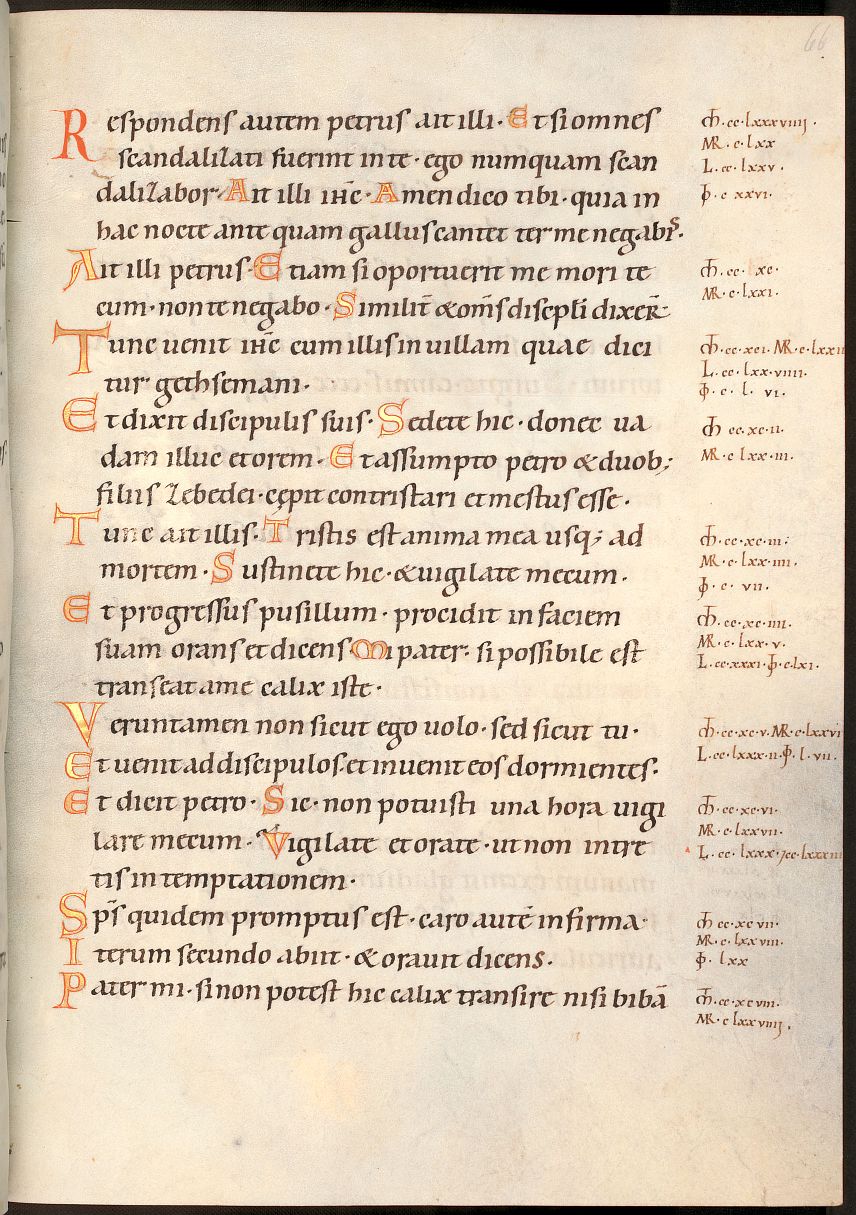 66
Respondens autem petrus ait illi· Et si omnes
scandalizati fuerint in te· ego numquam scan
dalizabor· Ait illi ihc̄· Amen dico tibi· quia in
hac nocte ante quam gallus cantet ter me negabis·
Ait illi petrus· Etiam si oportuerit me mori te
cum· non te negabo· Similit̄ & om̄s discipl̄i dixer̄
Tunc uenit ihc̄ cum illis in uillam quae dici
tur gethsemani·
Et dixit discipulis suis· Sedete hic· donec ua
dam illuc et orem· Et assumpto petro & duob;
filiis zebedei· cępit contristari et mestus esse·
Tunc ait illis· Tristis est anima mea usq; ad
mortem· Sustinete hic· & uigilate mecum·
Et progressus pusillum· procidit in faciem
suam orans et dicens· Mi pater· si possibile est
transeat a me calix iste·
Veruntamen non sicut ego uolo· sed sicut tu·
Et uenit ad discipulos· et inuenit eos dormientes·
Et dicit petro· Sic· non potuisti una hora uigi
lare mecum· Vigilate et orate· ut non intre
tis in temptationem·
Sp̄s quidem promptus est· caro autē infirma·
Iterum secundo abiit· & orauit dicens·
Pater mi· si non potest hic calix transire nisi bibā
cc·lxxxviiij·
MR·c·lxx
L·cc·lxxv·
c xxvi·
cc· xc·
MR·c·lxxi·
cc·xci· MR·c·lxxii
L·cc·lxx·viiii·
c· l· vi·
cc·xc·ii·
MR·c lxx·iii·
cc·xc·iii·
MR·c·lxx·iiii·
c· vii·
cc·xc·iiii·
MR·c·lxx·v·
L·cc·xxxi· c·lxi·
cc·xc·v· MR·c·lxxvi
L·cc·lxxx·ii· l·vii·
cc·xc·vi·
MR·c·lxxvii·
L·cc·lxxx·
cc·xcvii·
MR·c·lxxviii·
lxx
cc·xcviii·
MR·c·lxxviiij·